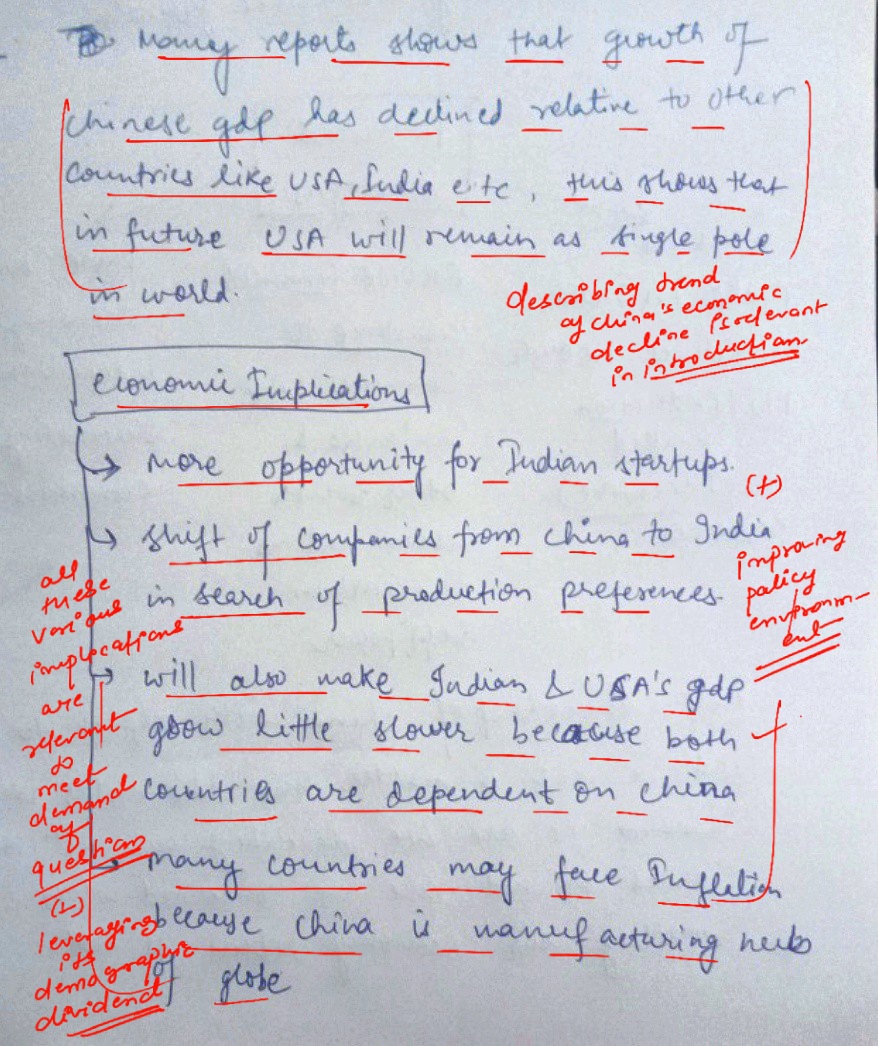 Many reports shows that growth of
chinese gdp has declined relative to other
countries like USA, India etc, this shows that
in future USA will remain as single pole
in world.
describing trend
of china's economic
decline is relevant
in introduction
Economic Implications
→ more opportunity for Indian startups.
(+)
improving
policy
environm-
ent
→ shift of companies from china to India
in search of production preferences.
→ will also make Indian & USA's gdp
grow little slower because both
countries are dependent on china
→ many countries may face Inflation
because china is manufacturing hub
of globe
all
these
various
implications
are
relevant
to
meet
demand
of
question
(+)
leveraging
its
demographic
dividend